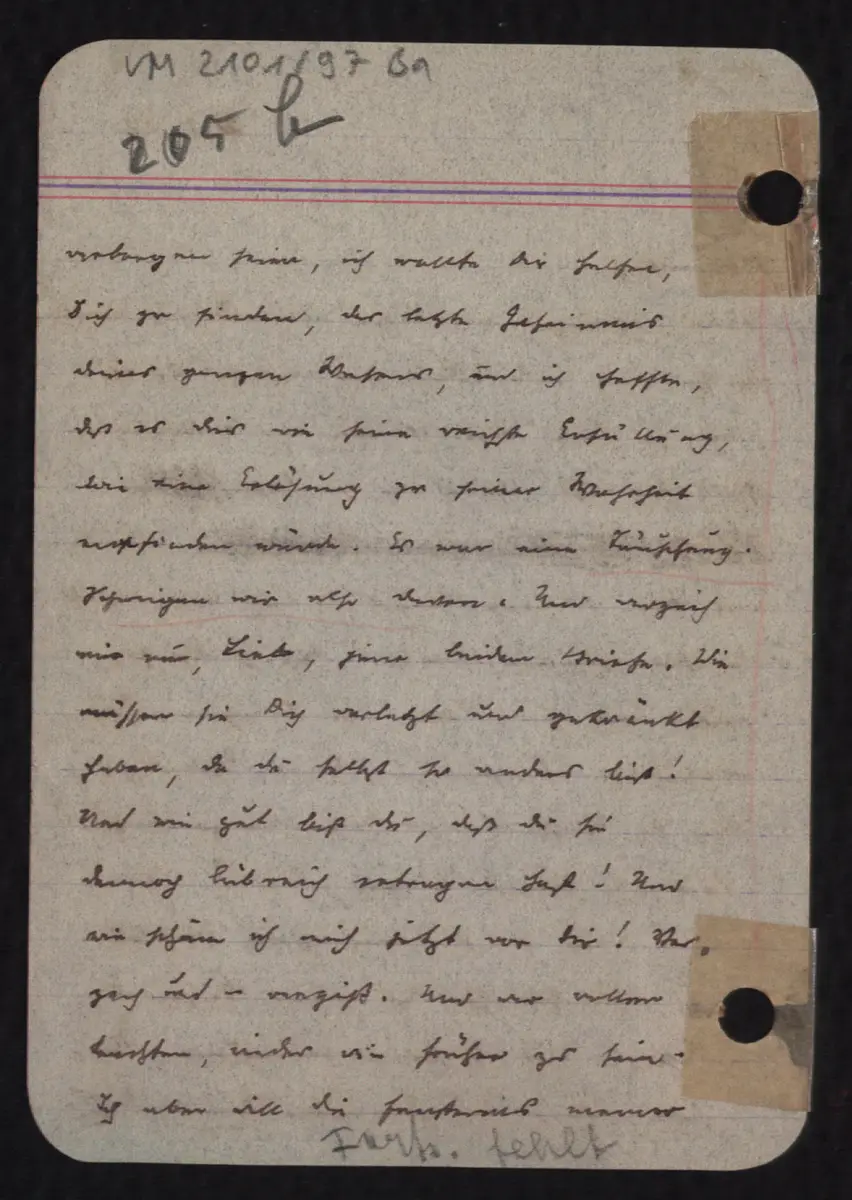 VM 2101/97 Ba
205 b
verborgen seine, ich wollte dir helfen,
Dich zu finden, das letzte Geheimnis
deines ganzen Wesens, und ich hoffte,
daß es dies wie seine reichste Erfüllung,
wie eine Erlösung zu seiner Wahrheit
empfinden würde. Es war eine Täuschung.
Schweigen wir also davon. Und verzeih
mir nur, Liebe, jene beiden Briefe. Wie
müssen sie Dich verletzt und gekränkt
haben, da du selbst so anders bist!
Und wie gut bist du, daß du sie
dennoch liebreich ertragen hast! Und
wie schäm ich mich jetzt vor dir! Ver-
zeih und – vergiß. Und wir wollen
, wieder wie früher zu sein.
Ich aber will die meiner
Forts. fehlt